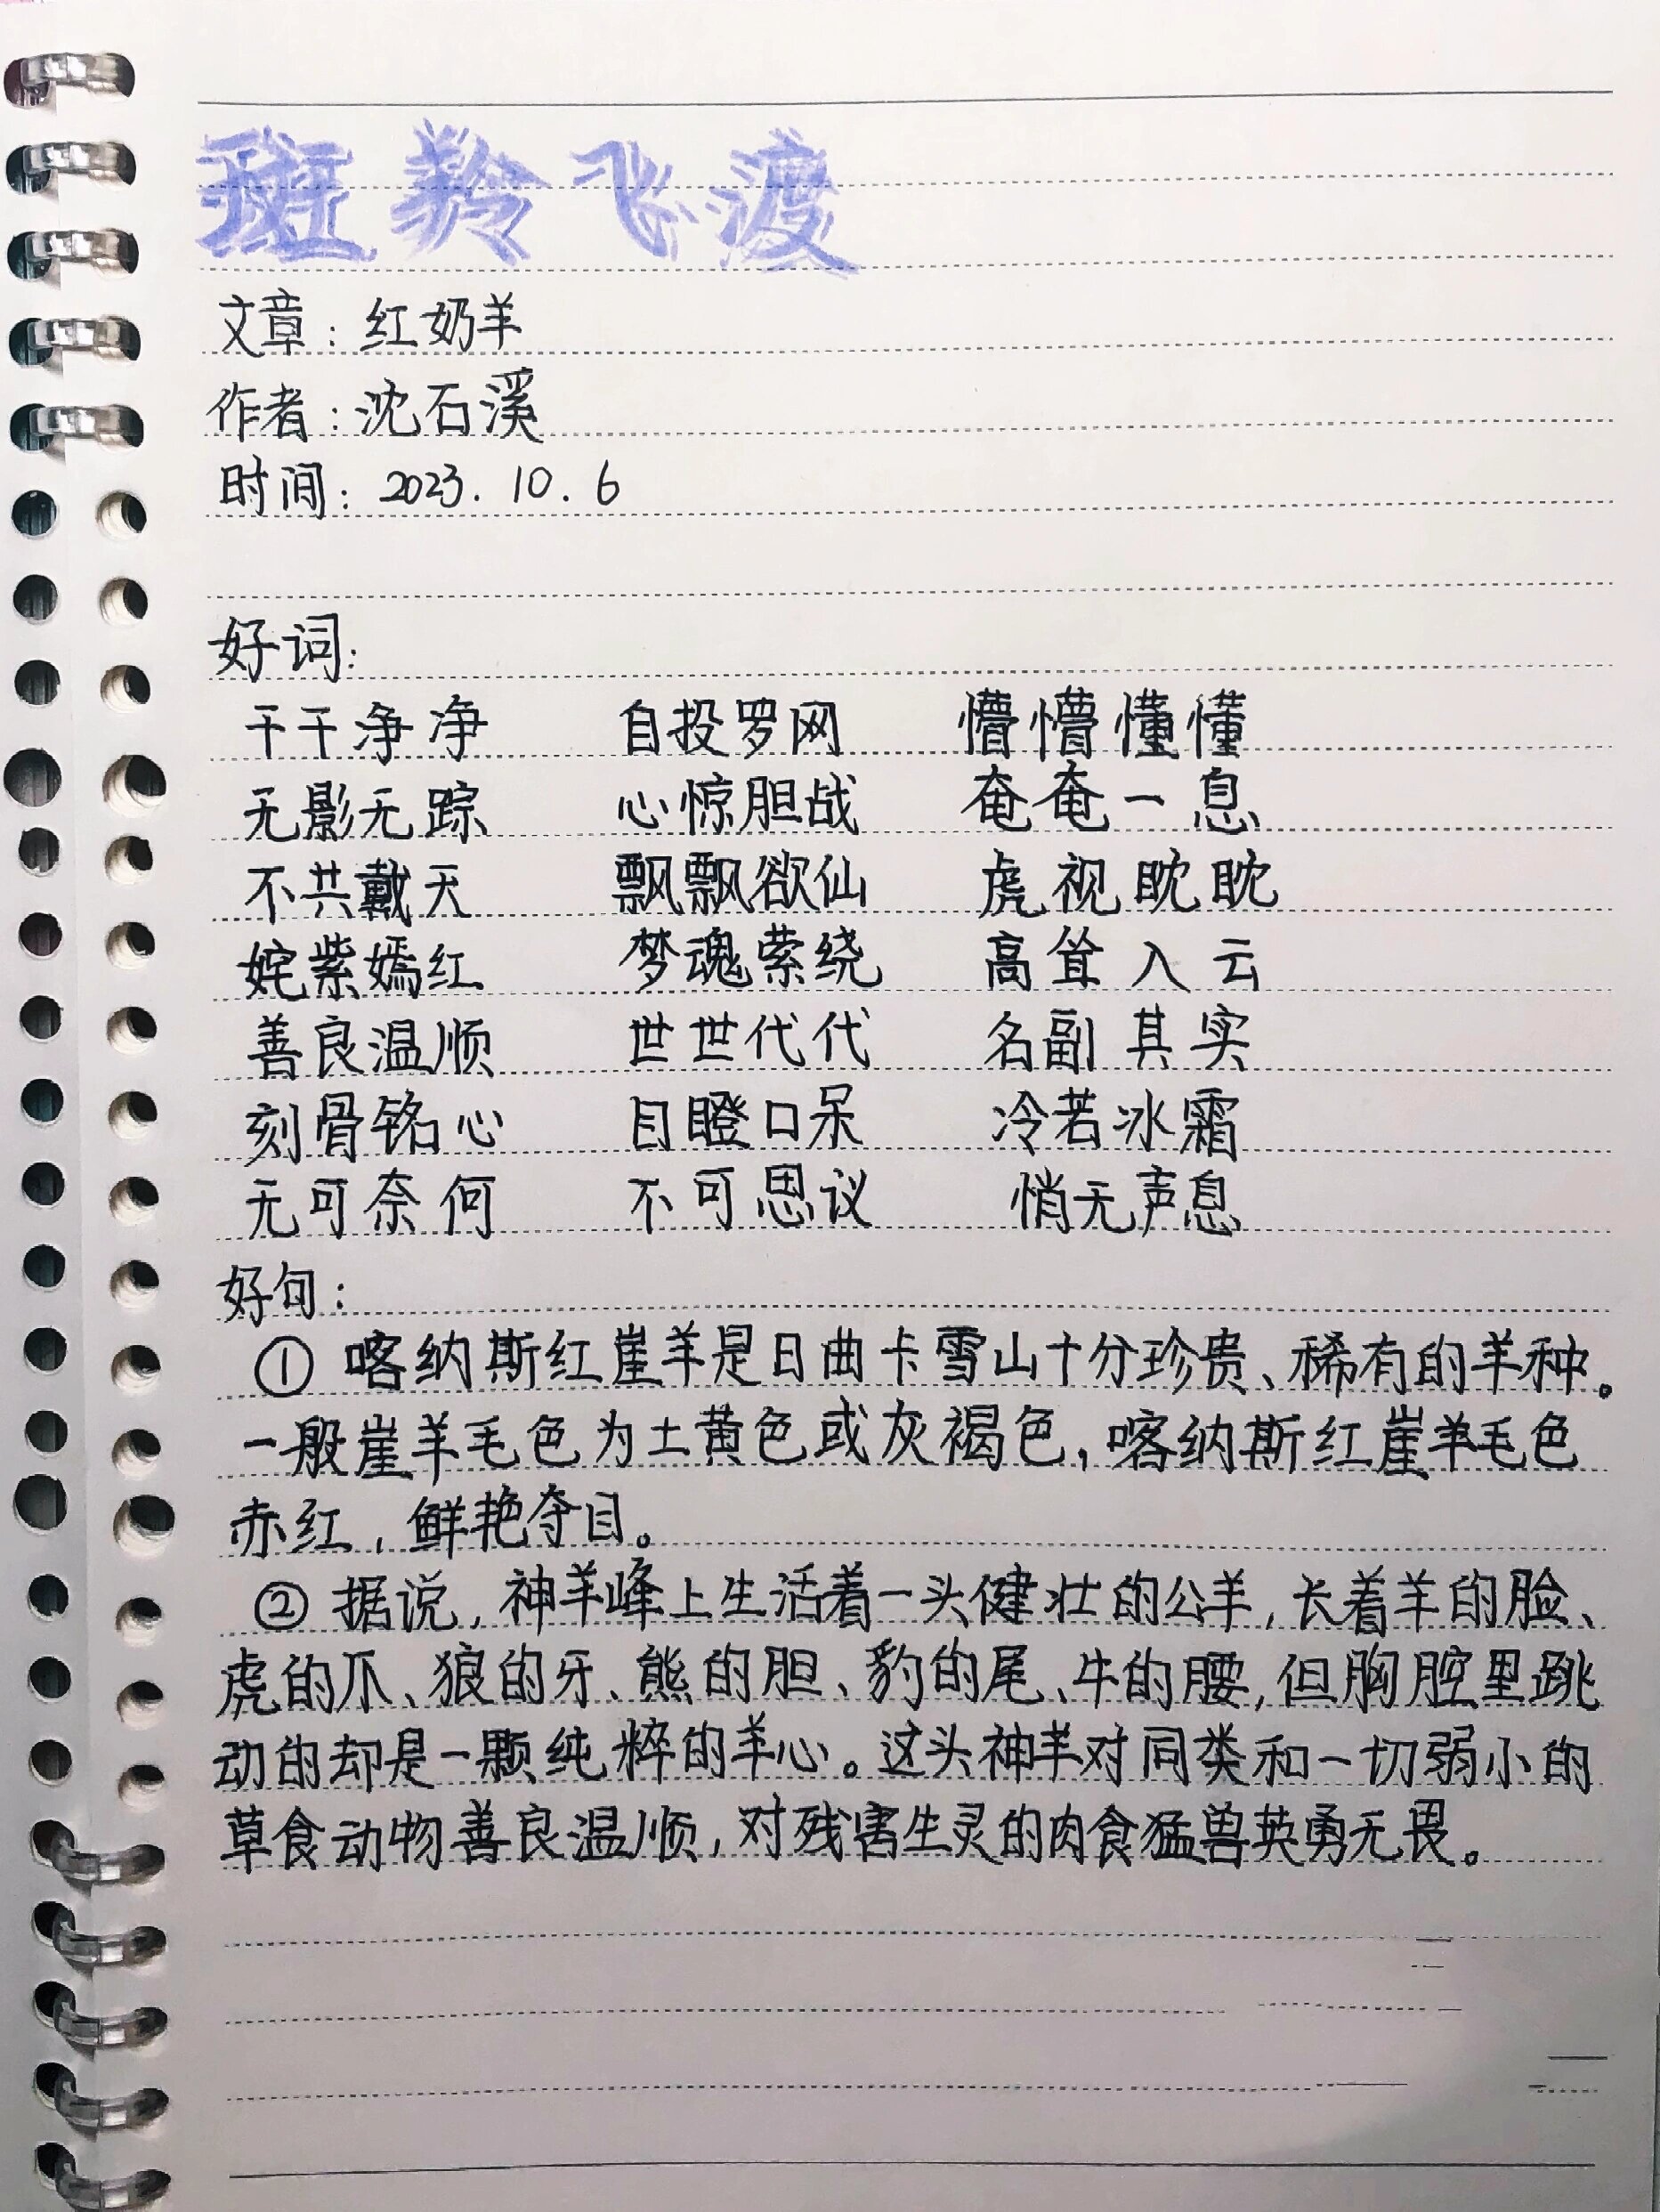 斑羚飞渡
文章：红奶羊
作者：沈石溪
时间：2023.10.6
好词：
干干净净 自投罗网 懵懵懂懂
无影无踪 心惊胆战 奄奄一息
不共戴天 飘飘欲仙 虎视眈眈
姹紫嫣红 梦魂萦绕 高耸入云
善良温顺 世世代代 名副其实
刻骨铭心 目瞪口呆 冷若冰霜
无可奈何 不可思议 悄无声息
好句：
① 喀纳斯红崖羊是日曲卡雪山十分珍贵、稀有的羊种。
一般崖羊毛色为土黄色或灰褐色，喀纳斯红崖羊毛色
赤红，鲜艳夺目。
② 据说，神羊峰上生活着一头健壮的公羊，长着羊的脸、
虎的爪、狼的牙、熊的胆、豹的尾、牛的腰，但胸腔里跳
动的却是一颗纯粹的羊心。这头神羊对同类和一切弱小的
草食动物善良温顺，对残害生灵的肉食猛兽英勇无畏。